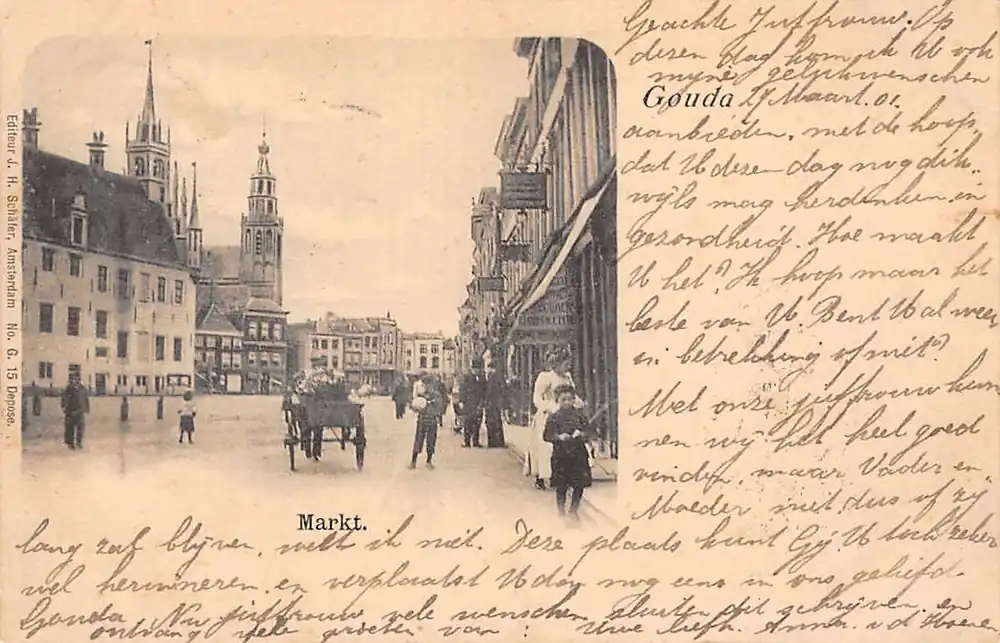 Geachte Juffrouw. Op
dezen dag kom ik U ook
mijne gelukwenschen
Gouda 29 Maart. 01.
aanbieden, met de hoop,
dat U dezen dag nog dik-
wijls mag herdenken in
gezondheid. Hoe maakt
U het? Ik hoop maar het
beste van U. Bent U al weer
in betrekking of niet?
Met onze juffrouw kun
nen wij het heel goed
vinden, maar Vader en
Moeder niet dus of zij
lang zal blijven, welk ik niet. Deze plaats kunt Gij U toch zeker
wel herinneren en verplaatst U dan nog eens in ons geliefd
Gouda. Nu juffrouw vele wenschen sluiten dit schrijven, en
ontvang vele groeten van : Uwe liefh. Anna. v d
Markt.
Editeur J. H. Schäfer, Amsterdam No. G. 15 Depose.